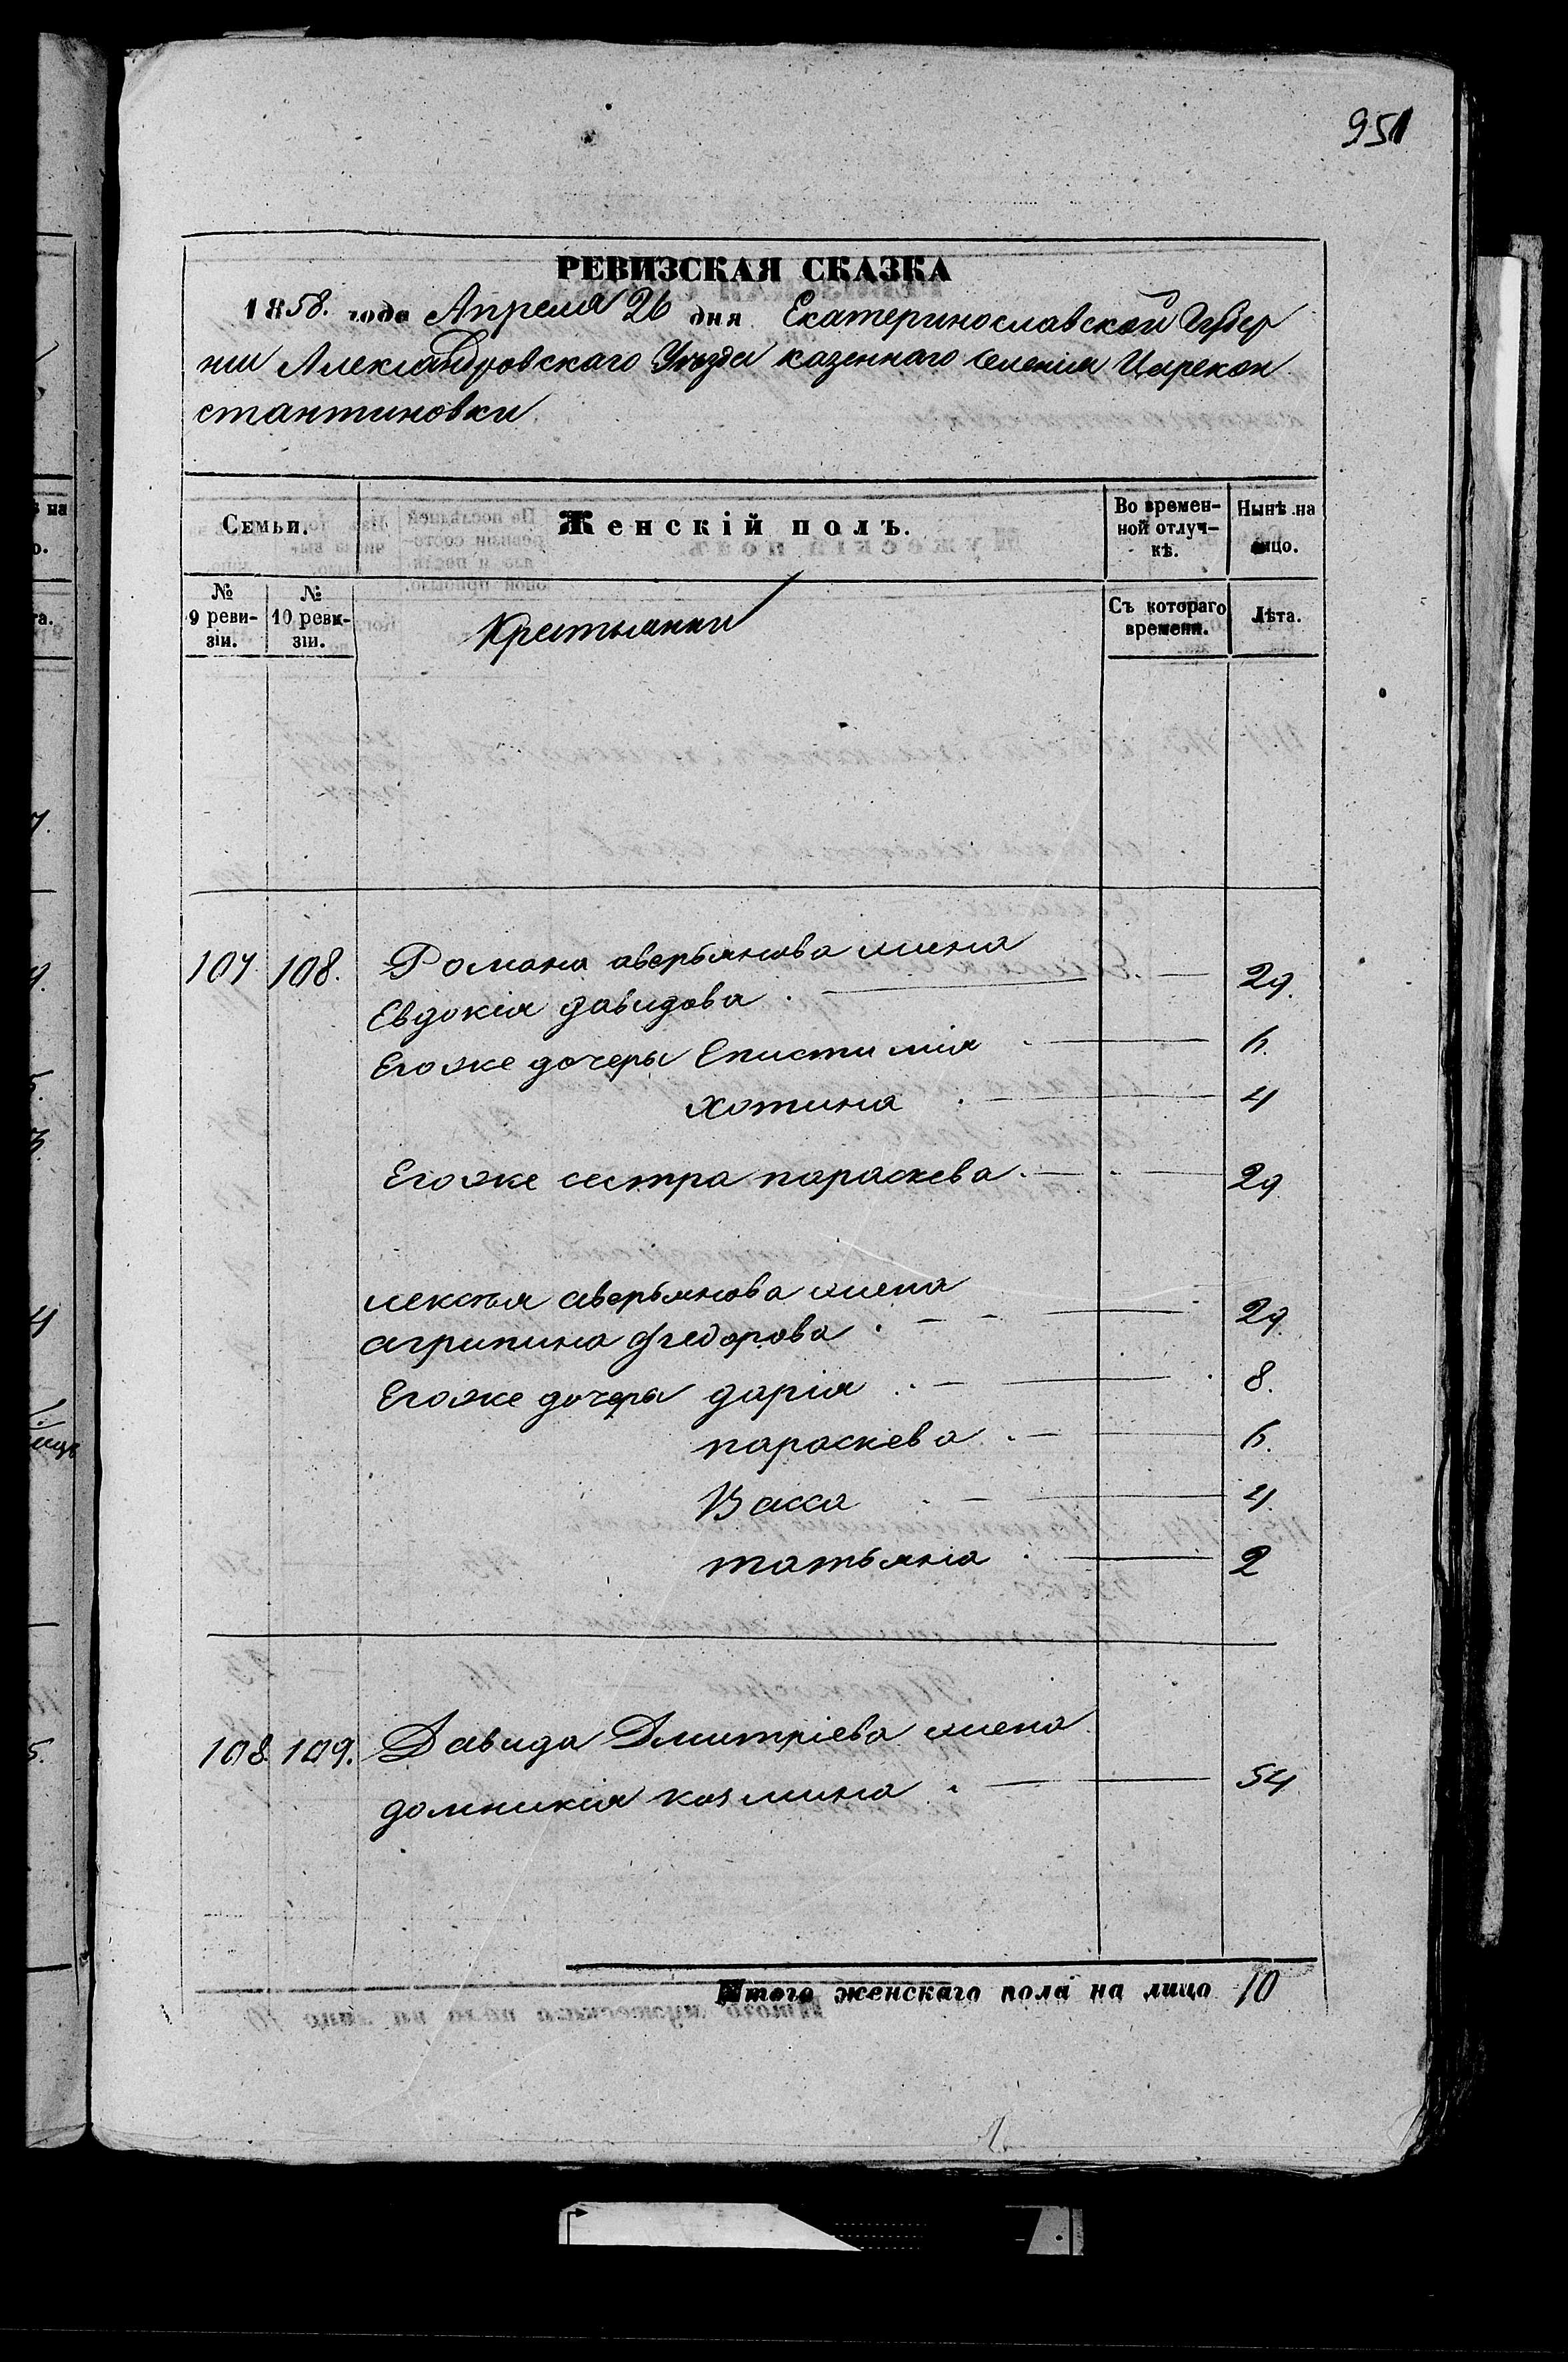 951
РЕВИЗСКАЯ СКАЗКА
1858. года Апреля 26 дня Екатеринославской Губер
нии Александровскаго Уезда казеннаго селенія Царекон
стантиновки
Семьи. Женскій полъ. Во времен-
ной отлуч-
кѣ. Нынѣ на
лицо.
№
9 реви-
зіи. №
10 реви-
зіи. Крестьянки Съ котораго
времени. Лѣта.
107. 108. Романа аверьянова жена
Евдокія давидова . 29.
Егоже дочеры Епистимія 6.
хотина 4
Егоже сестра параскева 29
лексѣя аверьянова жена
агрипина федорова . 29.
Егоже дочеры дарія 8.
параскева 6.
Васса 4.
татьяна 2
108 109. Давида Дмитріева жена
домникія козмина . 54
Итого женскаго пола на лицо 10